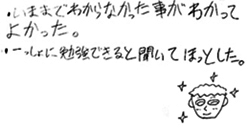 ・いままでわからなかった事がわかって
よかった。
・一っしょに勉強できると聞いてほっとした。